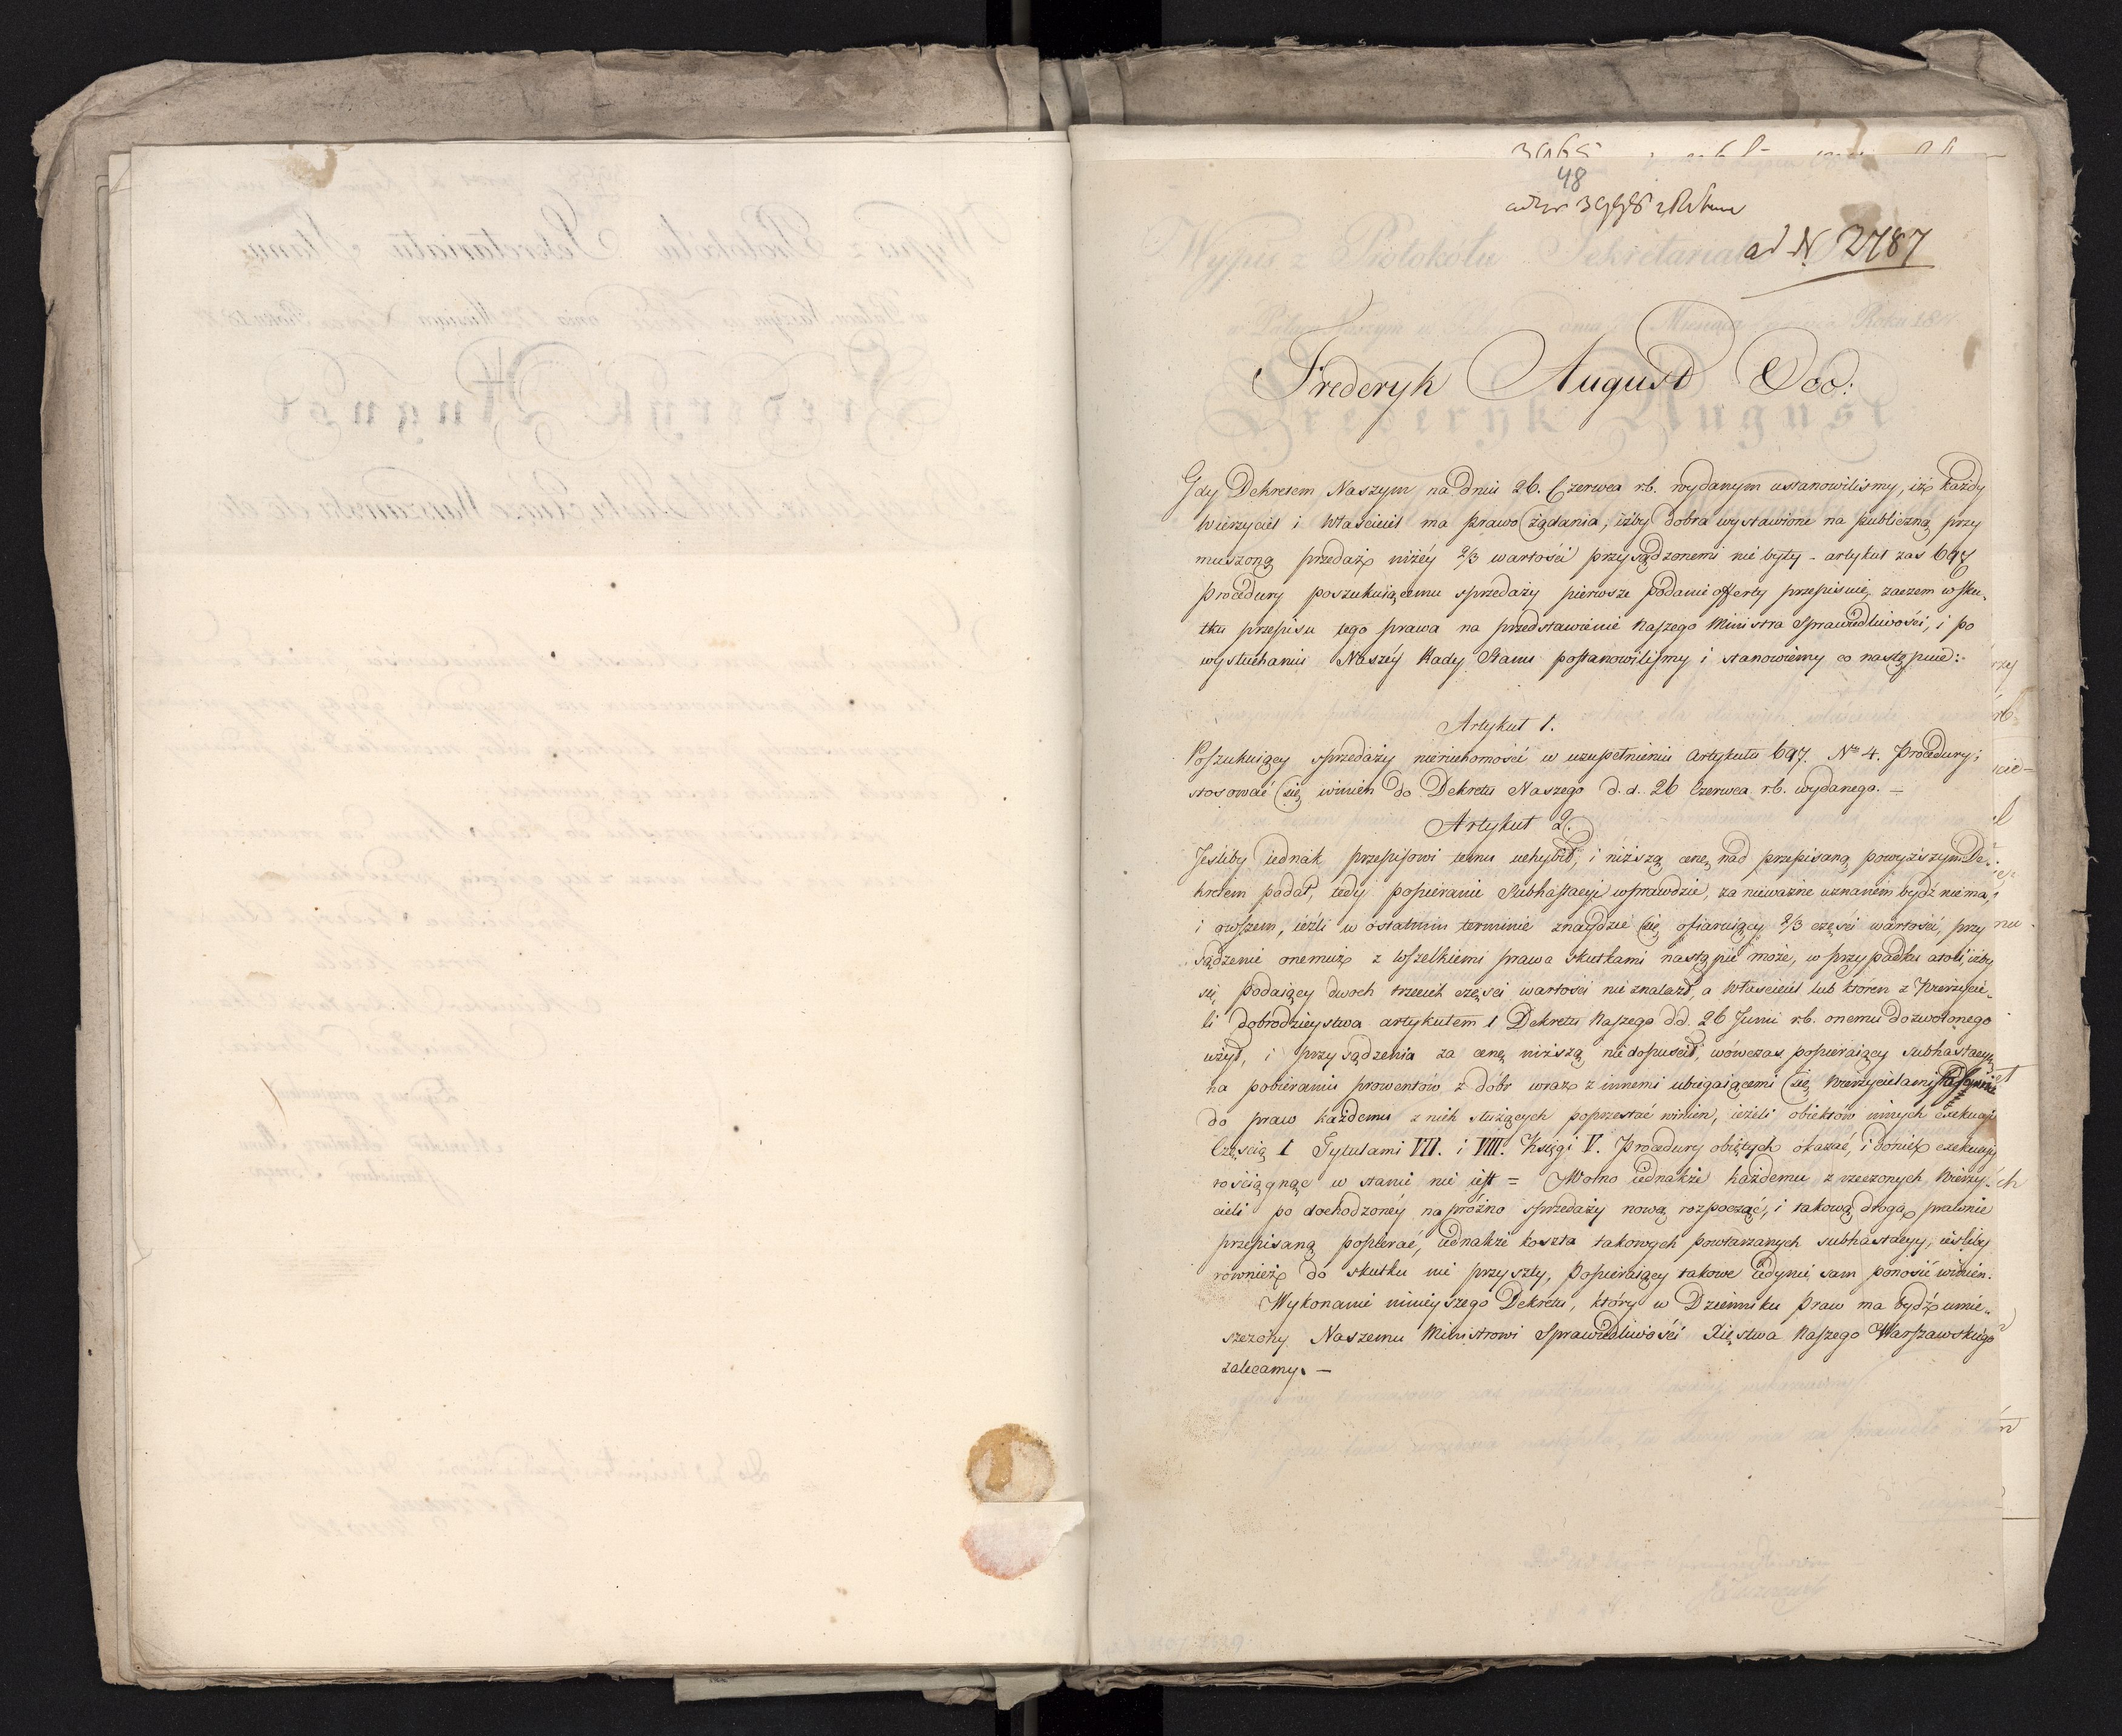 48
ad N 2787
Frederyk August &c&c:
Gdy Dekretem Naszym na dniu 26. Czerwca r.b. wydanym ustanowiliśmy, iż każdy
Wierzyciel i Właściciel ma prawo żądania, iżby dobra wystawione na publiczną przy
muszoną przedaż niżéy 2/3 wartości przysądzonemi nie były - artykuł zas 697
Procedury poszukuiącemu sprzedaży pierwsze podanie offerty przepisuie, zaczem w sku-
tku przepisu tego prawa na przedstawienie Naszego Ministra Sprawiedliwości, i po
wysłuchaniu Naszéy Rady Stanu postanowiliśmy i stanowiemy co następuie:
Artykuł 1.
Poszukuiący sprzedaży nieruchomości w uzupełnieniu Artykułu 697. Nro 4. Procedury;
stosować się winien do Dekretu Naszego d.d. 26 Czerwca r.b. wydanego. —
Artykuł 2.
Jesliby iednak przepisowi temu uchybił, i niższą cenę nad przepisaną powyższym De-
kretem podał, tedy popieranie Subhastacyi wprawdzie, za nieważne uznanem bydź nie ma,
i owszem, ieźli w ostatnim terminie znaydzie się ofiaruiący 2/3 części wartości, przy
sądzenie onemuż z wszelkiemi prawa skutkami nastąpić może, w przypadku atoli, iżby
się podaiący dwoch trzecich części wartości nie znalazł, a Właściciel lub ktoren z Wierzycie-
li dobrodzieystwa artykułem 1 Dekretu Naszego d.d. 26 Junii r.b. onemu dozwolonego
użył, i przysądzenia za cenę niższą nie dopuścił, wówczas popieraiący subhastacyą
na pobieraniu prowentów z dóbr wraz z innemi ubiegaiącemi się Wierzycielami
do praw każdemu z nich służących poprzestać winien, ieżeli obiektów innych exekucyi
Częścią I Tytułami VII. i VIII. Księgi V. Procedury obiętych okazać, i doniéż exekucyi
rościągnąć w stanie nie iest = Wolno iednakże każdemu z rzeczonych Wierzy-
cieli po dochodzonéy napróżno sprzedaży nową rozpocząć, i takową drogą prawnie
przepisaną popierać, iednakże koszta takowych powtarzanych subhastacyy, iesliby
również do skutku nie przyszły, Popieraiący takowe iedynie sam ponosić winien.
Wykonanie ninieyszego Dekretu, który w Dzienniku Praw ma bydź umie-
szczony Naszemu Ministrowi Sprawiedliwości Xięstwa Naszego Warszawskiego
zalecamy. —